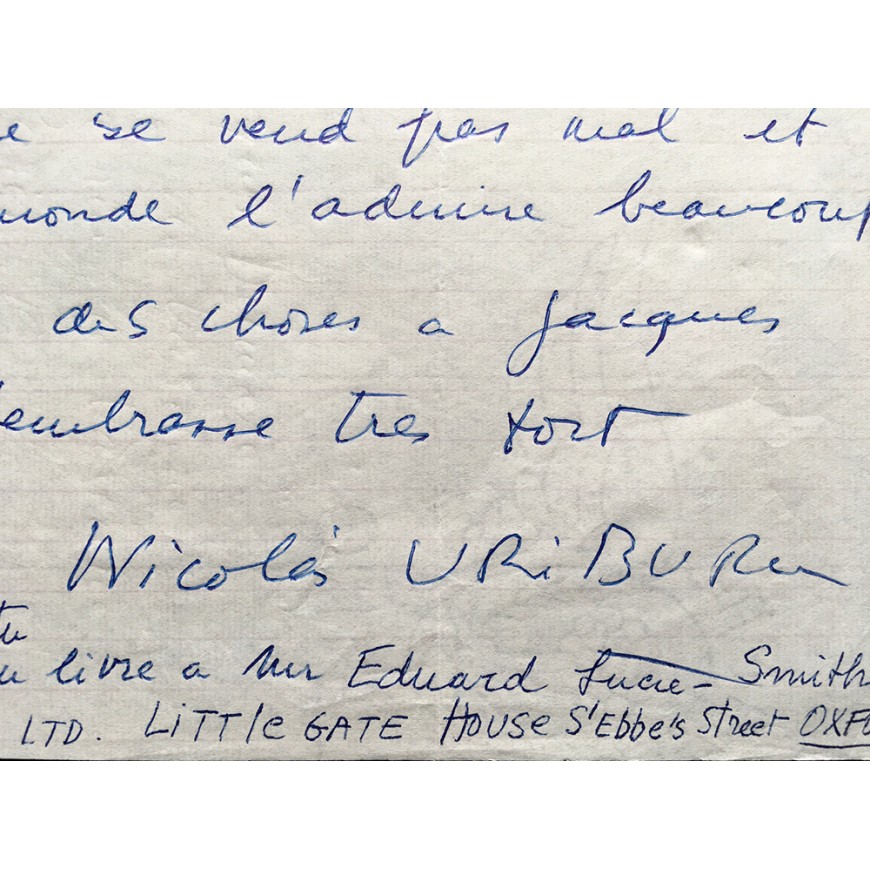 e se vend pas mal et
monde l'admire beaucoup
des choses a Jacques
'embrasse tres fort
Nicolás URiBURu
tu
livre a Mr Eduard Lucie-Smith
LTD. LiTTle GATE House S'Ebbe's Street OXFO